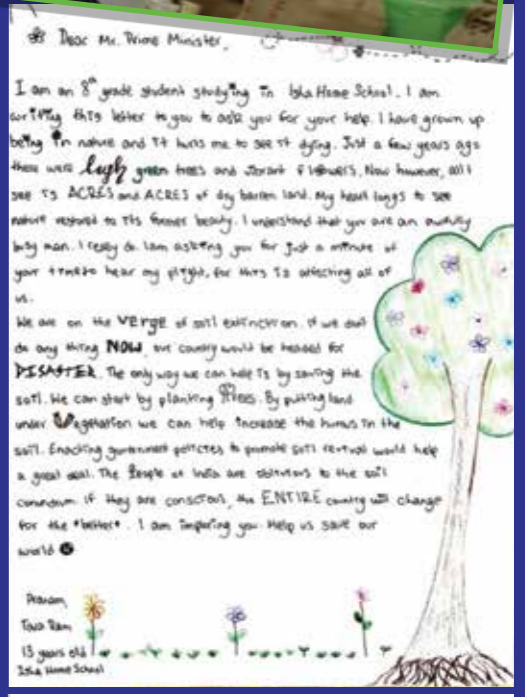 Dear Mr. Prime Minister,
I am an 8th grade student studying in Isha Home School. I am
writing this letter to you to ask you for your help. I have grown up
being in nature and it hurts me to see it dying. Just a few years ago
there were lush green trees and vibrant flowers. Now however, all I
see is ACRES and ACRES of dry barren land. My heart longs to see
nature restored to its former beauty. I understand that you are an awfully
busy man. I really do. I am asking you for just a minute of
your time to hear my plight, for this is affecting all of
us.
We are on the verge of soil extinction. If we don't
do any thing NOW, our country would be headed for
DISASTER. The only way we can help is by saving the
soil. We can start by planting trees. By putting land
under Vegetation we can help increase the humus in the
soil. Enacting government policies to promote soil revival would help
a great deal. The People of India are oblivious to the soil
conundrum. If they are conscious, the ENTIRE country will change
for the *better*. I am imploring you. Help us save our
world
Pranam,
Ram
13 years old
Isha Home School